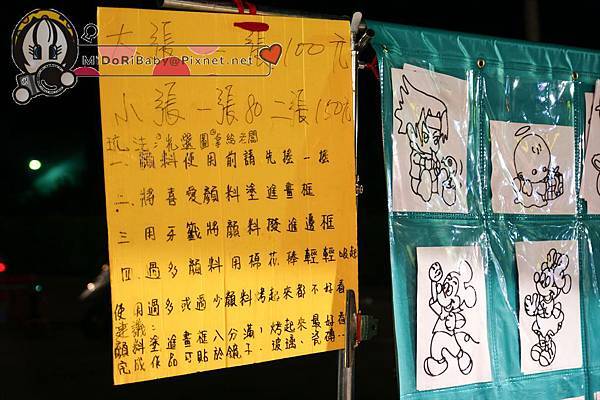 M'DoRiBaby@Pixnet.net
大張 一張100元
小張 一張80 二張150元
玩法:先選圖拿給老闆
一.顏料使用前請先搖一搖
二.將喜愛顏料塗進畫框
三用牙籤將顏料撥進邊框
四.過多顏料用棉花棒輕輕吸起
使用過多或過少顏料烤起來都不好看
建議:
顏料塗進畫框八分滿,烤起來最好看
完成作品可貼於鏡子.玻璃.瓷磚...